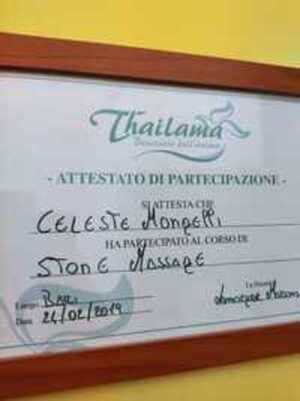 Thailama
Benessere dell'anima
- ATTESTATO DI PARTECIPAZIONE -
SI ATTESTA CHE
CELESTE MONDELLI
HA PARTECIPATO AL CORSO DI
STONE MASSAGE
Luogo: BARI
Data: 24/02/2019